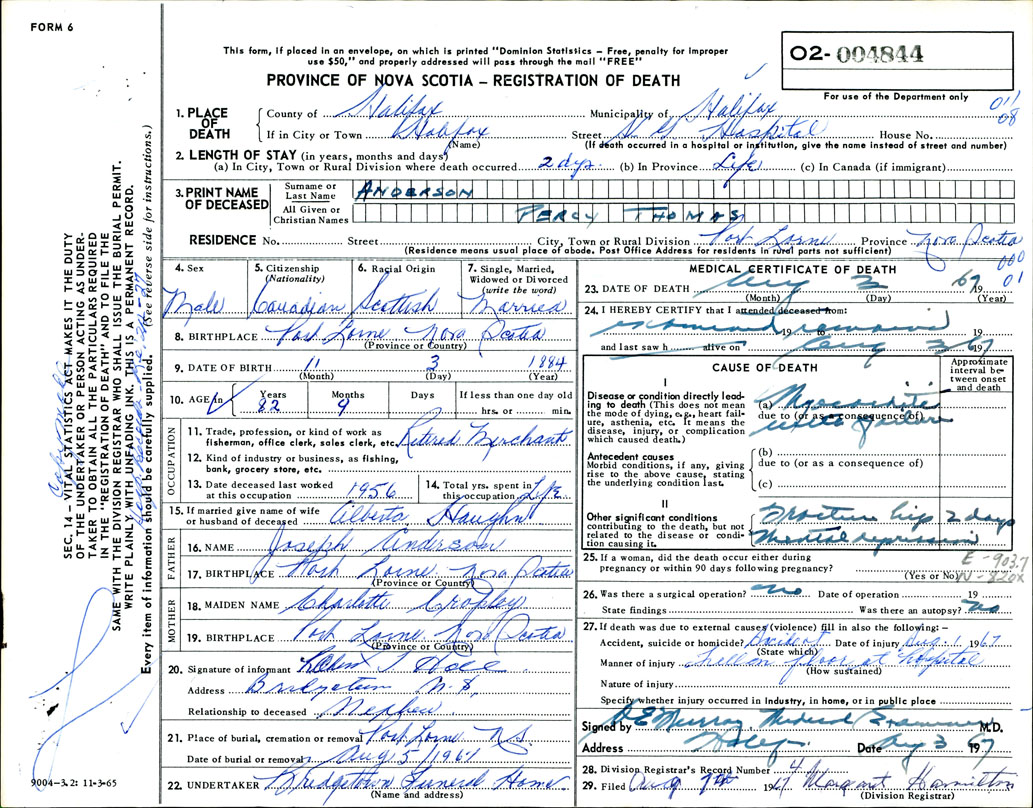 FORM 6
This form, if placed in an envelope, on which is printed "Dominion Statistics – Free, penalty for improper
use $50," and properly addressed will pass through the mail "FREE"
O2- 004844
PROVINCE OF NOVA SCOTIA – REGISTRATION OF DEATH
For use of the Department only
011
08
1. PLACE OF DEATH
County of Halifax Municipality of Halifax
If in City or Town Halifax Street V G Hospital House No.
(Name) (If death occurred in a hospital or institution, give the name instead of street and number)
2. LENGTH OF STAY (in years, months and days)
(a) In City, Town or Rural Division where death occurred 2 dys. (b) In Province Life (c) In Canada (if immigrant)
3. PRINT NAME OF DECEASED
Surname or Last Name ANDERSON
All Given or Christian Names PERCY THOMAS
RESIDENCE No. Street City, Town or Rural Division Port Lorne Province Nova Scotia
(Residence means usual place of abode. Post Office Address for residents in rural parts not sufficient)
000
01
4. Sex Male
5. Citizenship (Nationality) Canadian
6. Racial Origin Scottish
7. Single, Married, Widowed or Divorced (write the word) Married
8. BIRTHPLACE Port Lorne Nova Scotia
(Province or Country)
9. DATE OF BIRTH 11 3 1884
(Month) (Day) (Year)
10. AGE in Years 82 Months 9 Days If less than one day old hrs. or min.
OCCUPATION
11. Trade, profession or kind of work as fisherman, office clerk, sales clerk, etc. Retired Merchant
12. Kind of industry or business, as fishing, bank, grocery store, etc.
13. Date deceased last worked at this occupation 1956
14. Total yrs. spent in this occupation Life
15. If married give name of wife or husband of deceased Alberta Haughn
FATHER
16. NAME Joseph Anderson
17. BIRTHPLACE Port Lorne Nova Scotia
(Province or Country)
MOTHER
18. MAIDEN NAME Charlotte Cropley
19. BIRTHPLACE Port Lorne Nova Scotia
(Province or Country)
20. Signature of informant
Address Bridgetown N.S.
Relationship to deceased Nephew
21. Place of burial, cremation or removal Port Lorne N.S.
Date of burial or removal Aug 5/1967
22. UNDERTAKER Bridgetown Funeral Home
(Name and address)
MEDICAL CERTIFICATE OF DEATH
23. DATE OF DEATH Aug 3 1967
(Month) (Day) (Year)
24. I HEREBY CERTIFY that I attended deceased from:
examined remains 19 to 19
and last saw h alive on Aug 3 1967
CAUSE OF DEATH
Approximate interval between onset and death
I
Disease or condition directly leading to death (This does not mean the mode of dying, e.g., heart failure, asthenia, etc. It means the disease, injury, or complication which caused death.)
(a) Myocarditis
due to (or as a consequence of)
with failure
Antecedent causes
Morbid conditions, if any, giving rise to the above cause, stating the underlying condition last.
(b)
due to (or as a consequence of)
(c)
II
Other significant conditions contributing to the death, but not related to the disease or condition causing it.
Fracture hip 2 days
Mental depression
25. If a woman, did the death occur either during pregnancy or within 90 days following pregnancy?
(Yes or No)
E-903.7
N-820X
26. Was there a surgical operation? no Date of operation 19
State findings Was there an autopsy? no
27. If death was due to external causes (violence) fill in also the following: –
Accident, suicide or homicide? Accident Date of injury Aug. 1 1967
(State which)
Manner of injury fell on floor at hospital
(How sustained)
Nature of injury
Specify whether injury occurred in industry, in home, or in public place
Signed by D E Murray Medical Examiner M.D.
Address Halifax Date Aug 3 1967
28. Division Registrar's Record Number 4
29. Filed Aug 9th 1967 Margaret Hamilton
(Division Registrar)
SEC. 14 – VITAL STATISTICS ACT MAKES IT THE DUTY
OF THE UNDERTAKER OR PERSON ACTING AS UNDER-
TAKER TO OBTAIN ALL THE PARTICULARS REQUIRED
IN THE "REGISTRATION OF DEATH" AND TO FILE THE
SAME WITH THE DIVISION REGISTRAR WHO SHALL ISSUE THE BURIAL PERMIT.
WRITE PLAINLY WITH UNFADING INK. THIS IS A PERMANENT RECORD.
Every item of information should be carefully supplied. (See reverse side for instructions.)
9004-3.2: 11-3-65